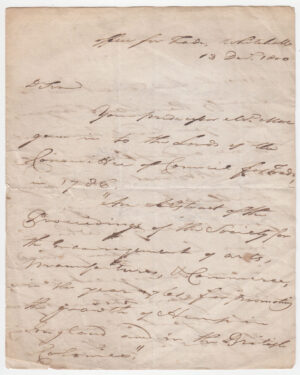 Office for Trade, Whitehall
13 Dec. 1800
Dr Sir
Your predecessor Mr More
gave in to the Lords of the
Committee of Council for Trade,
in 1786
"An Abstract of the
Proceedings of the Society for
the Encouragement of Arts,
Manufactures, & Commerce,
in the year 1786, for promoting
the growth of Hemp in
England and in the British
Colonies"